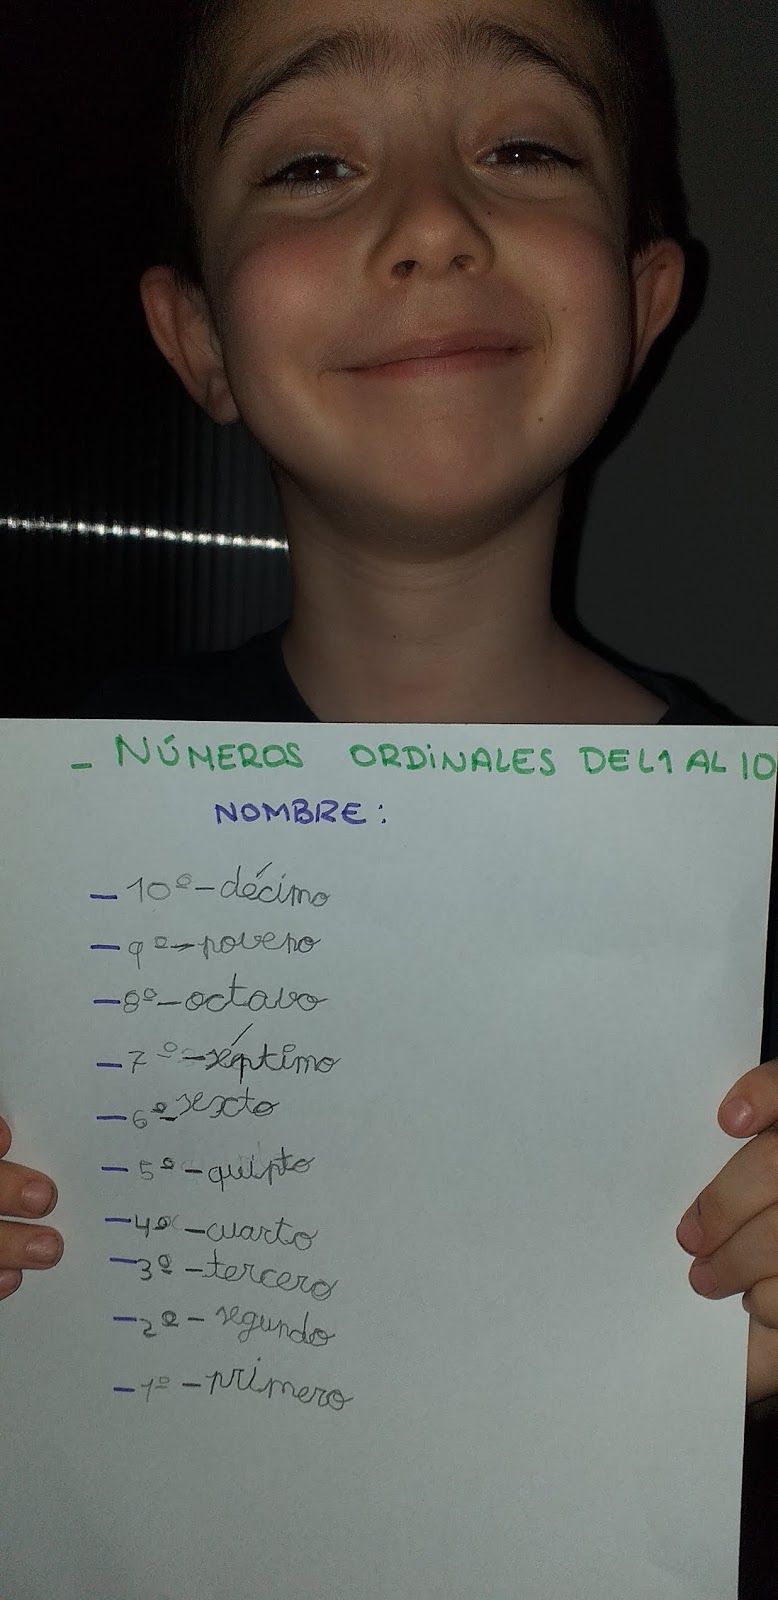 - NÚMEROS ORDINALES DEL 1 AL 10
NOMBRE:
- 10º - décimo
- 9º - noveno
- 8º - octavo
- 7º - séptimo
- 6º - sexto
- 5º - quinto
- 4º - cuarto
- 3º - tercero
- 2º - segundo
- 1º - primero